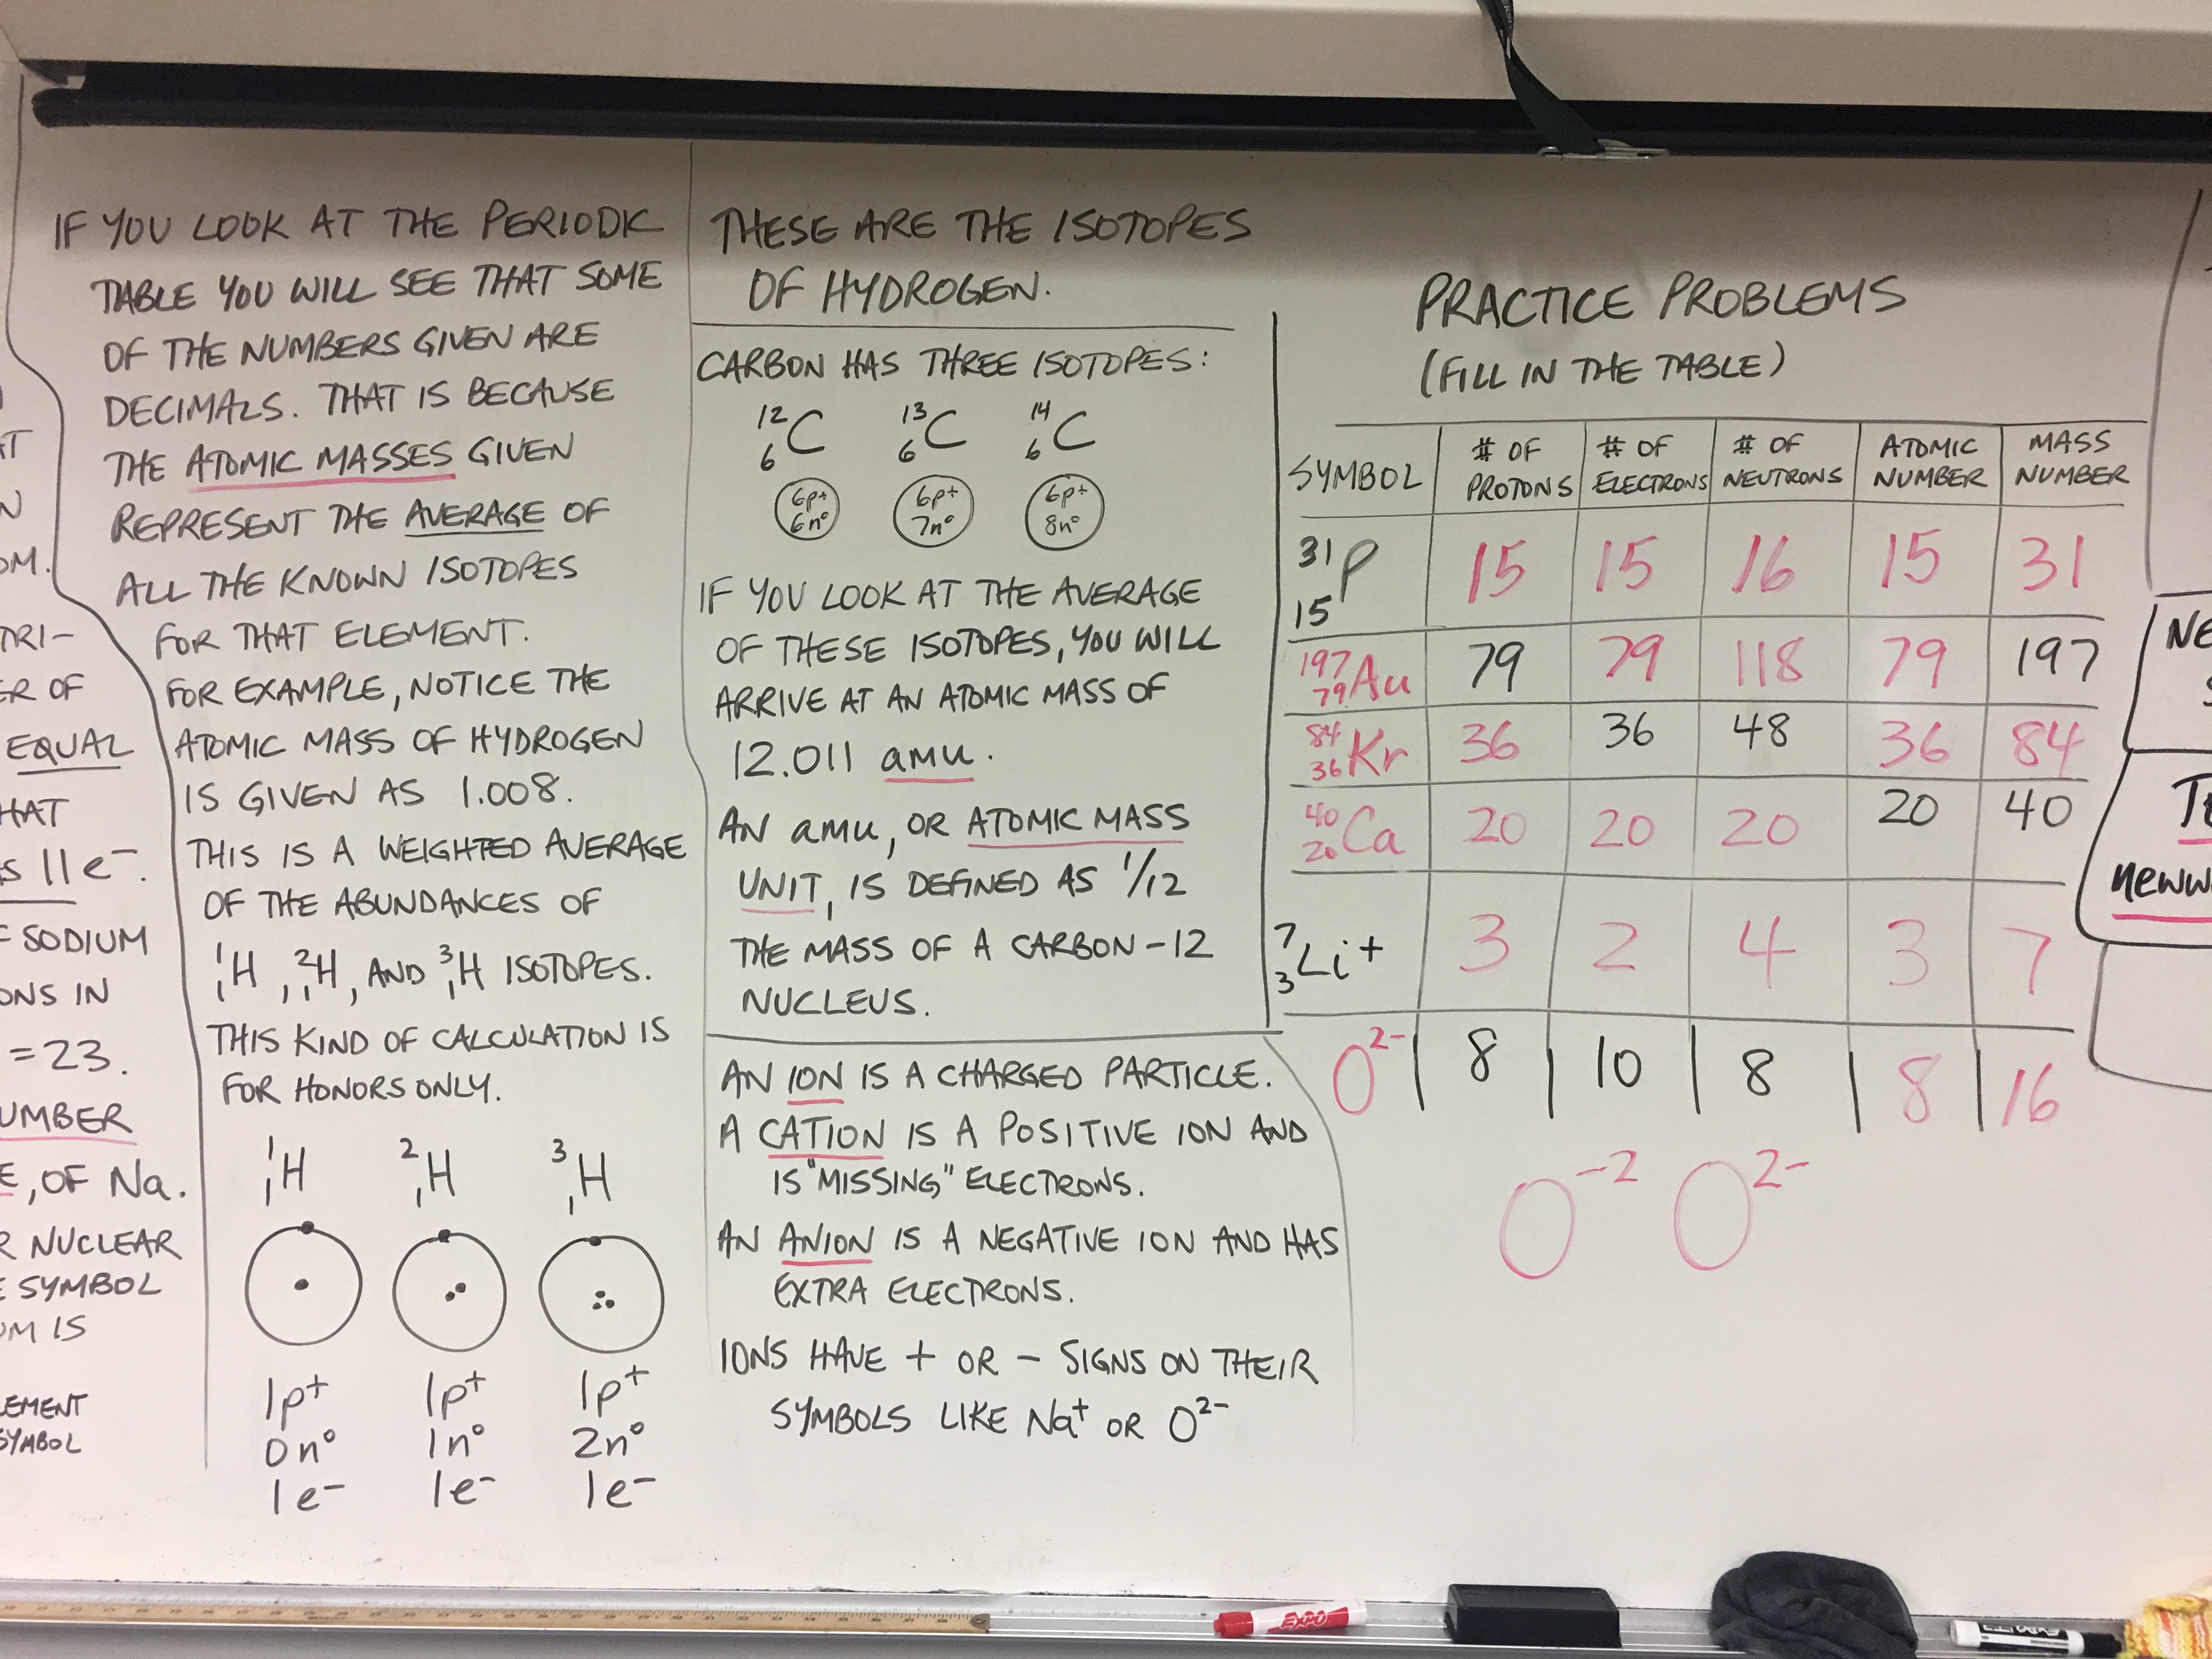 AT
N
OM.
TRI-
ER OF
EQUAL
HAT
S 11e-.
F SODIUM
ONS IN
= 23.
UMBER
E, OF Na.
R NUCLEAR
E SYMBOL
UM IS
LEMENT
SYMBOL
IF YOU LOOK AT THE PERIODIC
TABLE YOU WILL SEE THAT SOME
OF THE NUMBERS GIVEN ARE
DECIMALS. THAT IS BECAUSE
THE ATOMIC MASSES GIVEN
REPRESENT THE AVERAGE OF
ALL THE KNOWN ISOTOPES
FOR THAT ELEMENT.
FOR EXAMPLE, NOTICE THE
ATOMIC MASS OF HYDROGEN
IS GIVEN AS 1.008.
THIS IS A WEIGHTED AVERAGE
OF THE ABUNDANCES OF
¹₁H, ²₁H, AND ³₁H ISOTOPES.
THIS KIND OF CALCULATION IS
FOR HONORS ONLY.
¹₁H ²₁H ³₁H
1p⁺ 1p⁺ 1p⁺
0n⁰ 1n⁰ 2n⁰
1e⁻ 1e⁻ 1e⁻
THESE ARE THE ISOTOPES
OF HYDROGEN.
CARBON HAS THREE ISOTOPES:
¹²₆C ¹³₆C ¹⁴₆C
6p⁺ 6p⁺ 6p⁺
6n⁰ 7n⁰ 8n⁰
IF YOU LOOK AT THE AVERAGE
OF THESE ISOTOPES, YOU WILL
ARRIVE AT AN ATOMIC MASS OF
12.011 amu.
AN amu, OR ATOMIC MASS
UNIT, IS DEFINED AS 1/12
THE MASS OF A CARBON-12
NUCLEUS.
AN ION IS A CHARGED PARTICLE.
A CATION IS A POSITIVE ION AND
IS "MISSING" ELECTRONS.
AN ANION IS A NEGATIVE ION AND HAS
EXTRA ELECTRONS.
IONS HAVE + OR - SIGNS ON THEIR
SYMBOLS LIKE Na⁺ OR O²⁻
PRACTICE PROBLEMS
(FILL IN THE TABLE)
SYMBOL # OF PROTONS # OF ELECTRONS # OF NEUTRONS ATOMIC NUMBER MASS NUMBER
³¹₁₅P 15 15 16 15 31
¹⁹⁷₇₉Au 79 79 118 79 197
⁸⁴₃₆Kr 36 36 48 36 84
⁴⁰₂₀Ca 20 20 20 20 40
⁷₃Li⁺ 3 2 4 3 7
O²⁻ 8 10 8 8 16
O⁻² O²⁻
NE
neww
EXPO